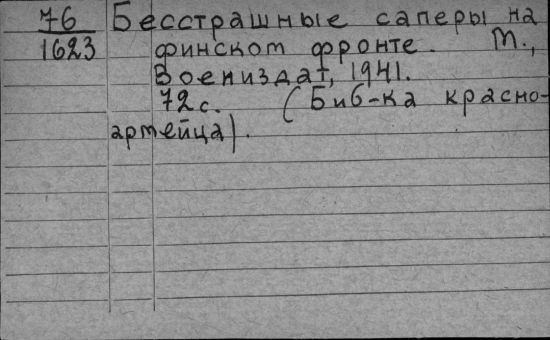 76 Бесстрашные саперы на
1623 финском фронте. М.,
Воениздат, 1941.
72 с. (Биб-ка красно-
армейца).